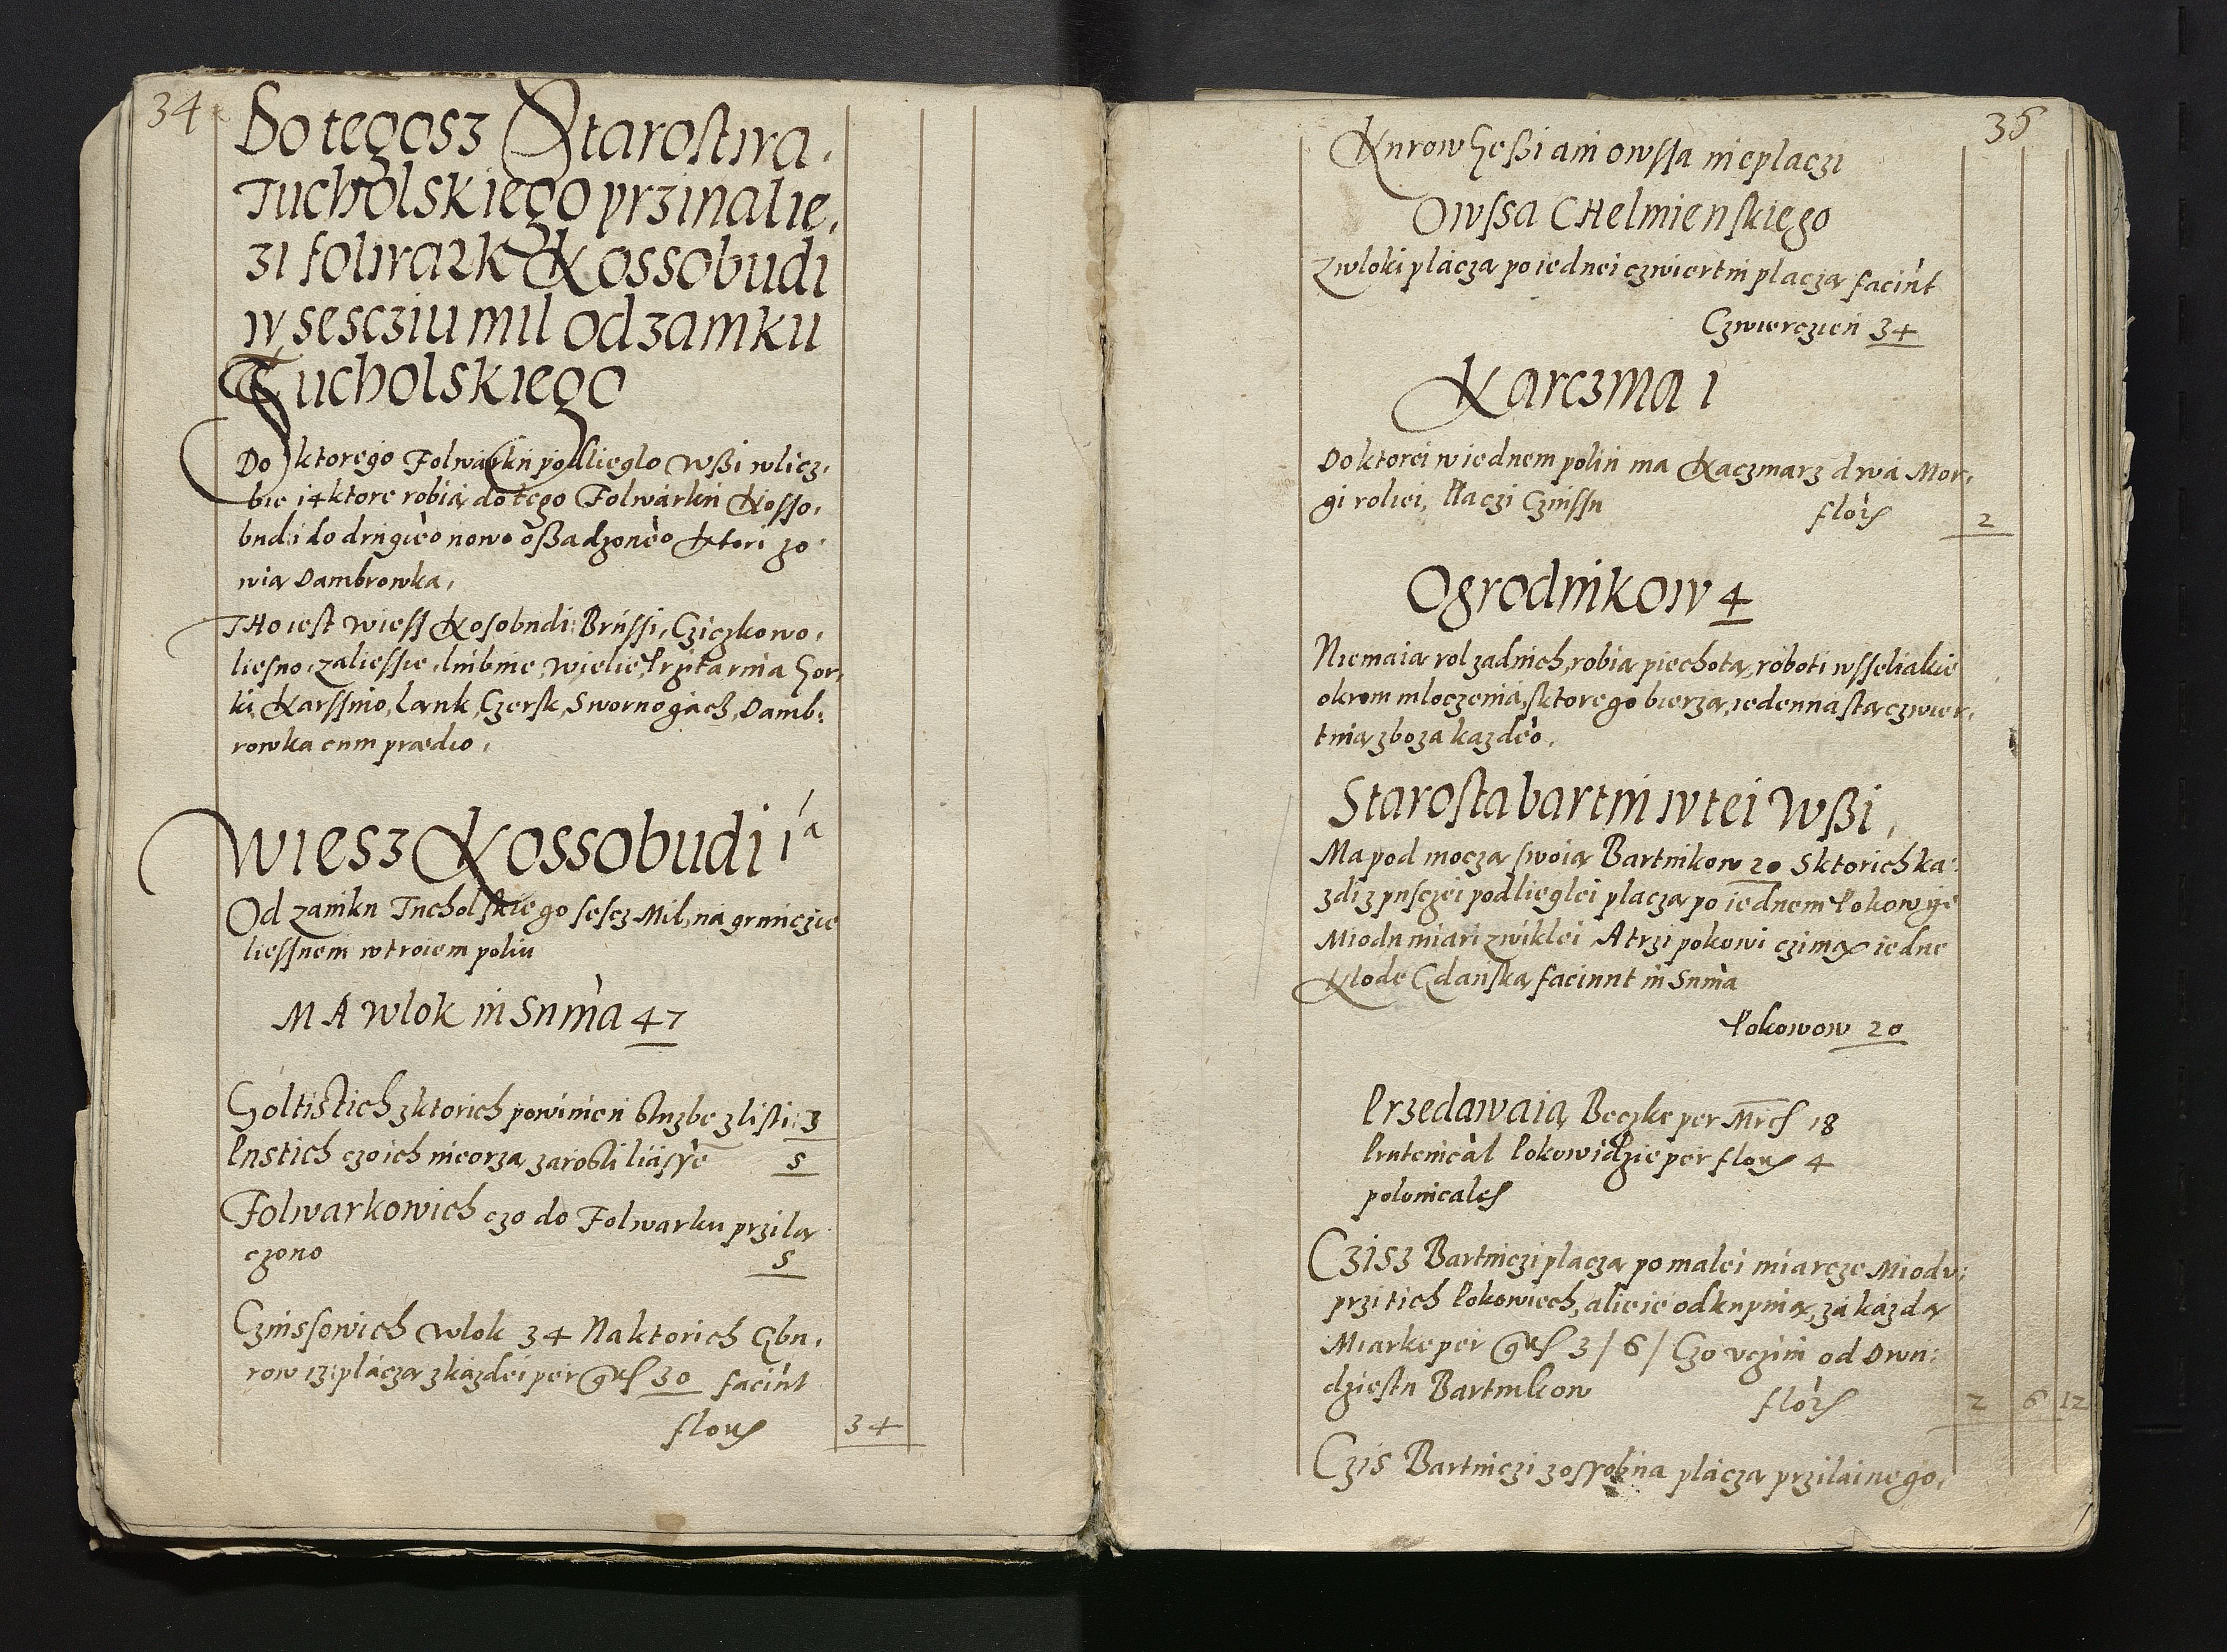 34
Do tegosz Starostwa,
Tucholskiego przinalie,
zi folwark Kossobudi
w sescziu mil od zamku
Tucholskiego
Do ktorego Folwarku podlieglo Wßi w licz,
bie 14 ktore robią do tego Folwarku Kosso,
budi i do drugieo nowo oßadzoneo ktori zo
wią Dambrowka,
THo iest wiess Kosobudi, Brussi, Cziczkowo,
liesno, zaliessie, lubnie, wielie, Przitarnia Gor,
ki, Karssino, Ląnk, Czersk, Swornogacz, Damb,
rowka cum prædio,
Wiesz Kossobudi 1ᵃ
Od zamku Tucholskiego sescz Mil, na gruncie
liessnem w troiem poliu
MA Wlok in Summa 47
Soltistich z ktorich powinien sluzbe z listi, 3
Pustich czo ich nie orzą zarosli liassẽ 5
Folwarkowich czo do Folwarku przilą
czono 5
Czinssowich wlok 34 Na ktorich Gbu,
row 13 płaczą z kazdei per g̃s 30 faciunt
flous 34
35
Knrow Gessi ani owssa nie placzi
Owssa CHelmienskiego
z wloki placzą po iednei czwiertni placzą faciunt
Czwierczien 34
Karczma 1
Do ktorei w iednem poliu ma Kaczmarz dwa Mor,
gi roliei, Placzi Czinssu flors 2
Ogrodnikow 4
Nie maią rol zadnich, robią piechotą, roboti wsseliakie
okrom mloczenia, s ktorego bierzą, iedennastą czwier,
tnią zboza kazdeo,
Starosta bartni w tei Wßi,
Ma pod moczą swoią Bartnikow 20 S ktorich ka
zdi z pusczei podlieglei placzą po iednem Pokowie
Miodu miari zwiklei A trzi pokowi czinią iedne
Klode Gdanską faciunt in Summa
Pokowow 20
Przedawaią Beczke per Mrcs 18
Prutenical Pokowidzie per flous 4
polonicales
Czisz Bartniczi placzą po malei miarcze Miodu,
przi tich Pokowiech, alie ie odkupuią, za kazdą
Miarke per g̃s 3 / 6 / Czo vczini od Dwu
dziestu Bartnikow flors 2 6 12
Czis Bartniczi zossobna placzą przilainego,